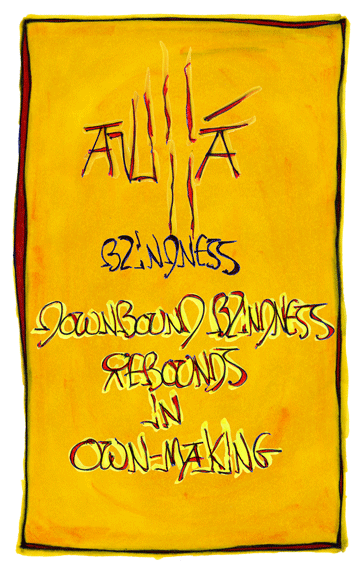 BLINDNESS
DOWNBOUND BLINDNESS
REBOUNDS
IN
OWN-MAKING